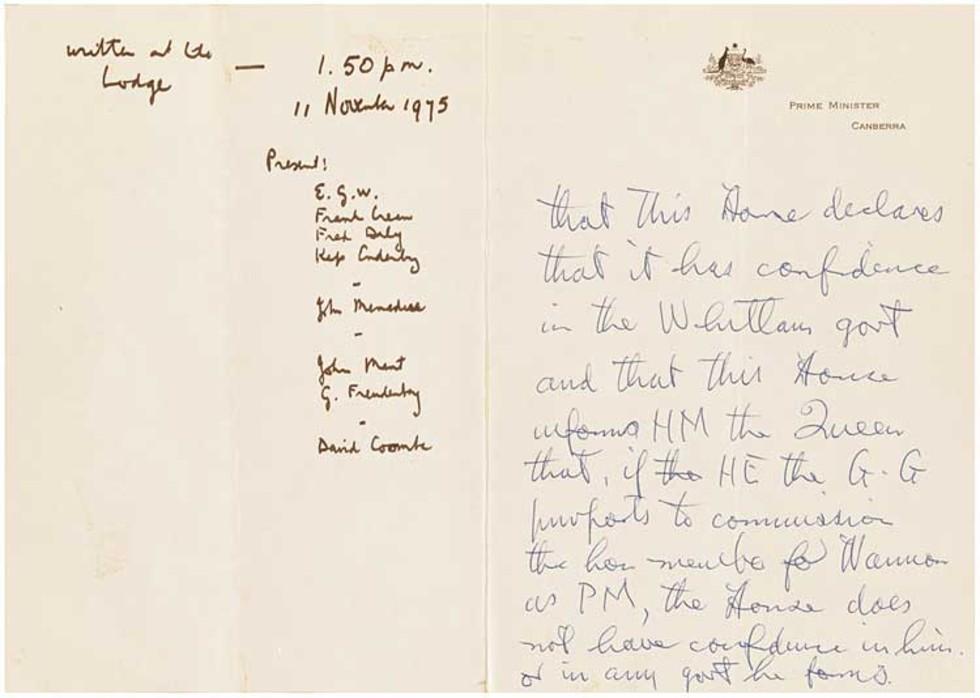 written at the
Lodge
— 1.50 pm.
11 November 1975
Present:
E.G.W.
Frank Crean
Fred Daly
Kep Enderby
-
John Menadue
-
John Mant
G. Freudenberg
-
David Coombe
PRIME MINISTER
CANBERRA
that this House declares
that it has confidence
in the Whitlam govt
and that this House
informs HM the Queen
that, if the HE the G-G
purports to commission
the hon member for Wannon
as PM, the House does
not have confidence in him.
or in any govt he forms.